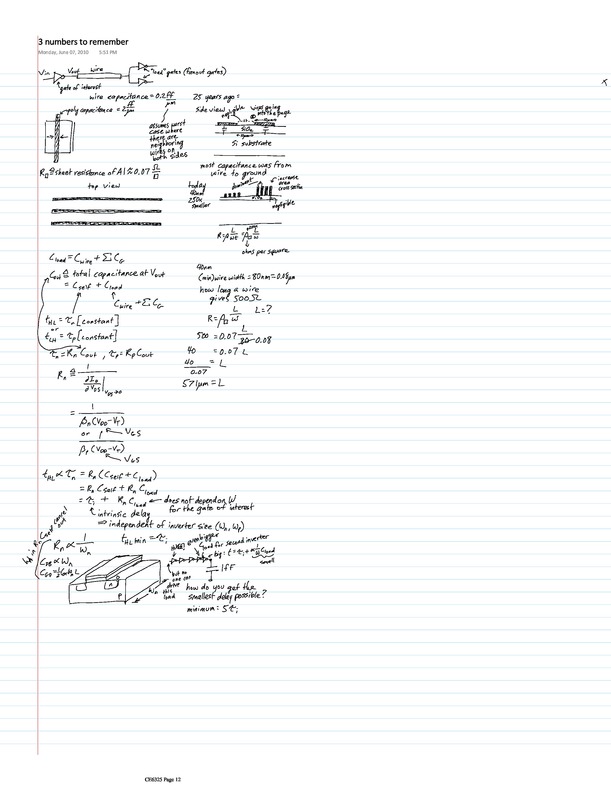 3 numbers to remember
Monday, June 07, 2010 5:53 PM
Vin Vout wire "load" gates (fanout gates)
gate of interest
wire capacitance = 0.2 fF/μm
poly capacitance = 2 fF/μm
assumes worst
case where
there are
neighboring
wires on
both sides
R□ ≜ sheet resistance of Al ≈ 0.07 Ω/□
top view
25 years ago:
side view
negligible
wires going
into the page
SiO2
Si substrate
most capacitance was from
wire to ground
today
40nm
250x
smaller
dominant
increase
area
cross section
negligible
R = ρ L/Wt = R□ L/W
ohms per square
Cload = Cwire + Σ CG
Cout ≜ total capacitance at Vout
= Cself + Cload
Cwire + Σ CG
tHL = τn [constant]
or
tLH = τp [constant]
τn = Rn Cout , τp = Rp Cout
Rn ≜ 1 / (∂ID/∂VDS |VDS→0)
= 1 / βn (VDD - VT)
or VGS
1 / βp (VDD - VT)
VGS
40nm
(min) wire width = 80nm = 0.08μm
how long a wire
gives 500Ω
R = R□ L/W L = ?
500 = 0.07 L/0.08
40 = 0.07 L
40/0.07 = L
571μm = L
tHL ∝ τn = Rn (Cself + Cload)
= Rn Cself + Rn Cload
= τi + Rn Cload ← does not depend on W
for the gate of interest
intrinsic delay
⇒ independent of inverter size (Wn, Wp)
tHL min = τi
Rn ∝ 1/Wn
CDB ∝ Wn
n
p
Wn
even bigger
Cload for second inverter
big: t = τi +
small
but no
one can
drive
this
load
1fF
how do you get the
smallest delay possible?
minimum: 5τi
CE6325 Page 12